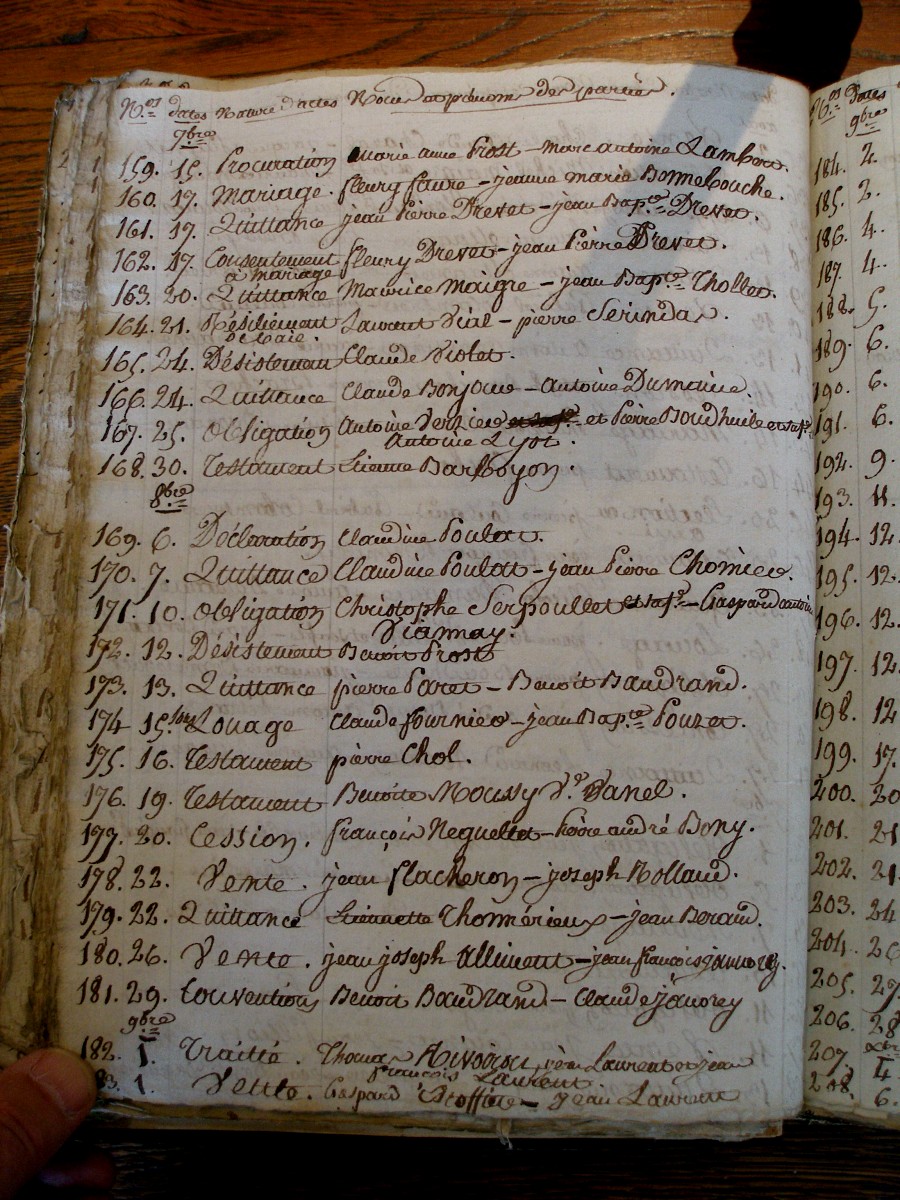 N.os dates Nature d'actes Noms et prénoms des parties.
7bre
159. 15. Procuration Marie anne Prost - Marc antoine Lambert.
160. 17. Mariage. fleury faure - jeanne marie Bonnebouche.
161. 17. Quittance jean Pierre Drevet - jean Bap.te Drevet.
162. 17. Consentement fleury Drevet - jean Pierre Drevet.
à mariage
163. 20. Quittance Maurice Maigre - jean Bap.te Thollet.
164. 21. Résiliement Laurent Vial - pierre
de Baie.
165. 24. Désistement Claude Violet.
166. 24. Quittance Claude Bonjour - antoine Dumaine.
167. 25. Obligation antoine et Pierre
Antoine Lyot.
168. 30. Testament Etienne Barboyon.
8bre
169. 6. Déclaration Claudine Poulat.
170. 7. Quittance Claudine Poulatt - jean Pierre Chomier.
171. 10. Obligation Christophe Serpoullet et sa f.e - Gaspard antoine
Viannay.
172. 12. Désistement Benoit Prost
173. 13. Quittance pierre Paret - Benoit Baudrand.
174 15. Louage Claude fournier - jean Bap.te Pouzet.
175. 16. Testament pierre Chol.
176. 19. Testament Benoite Moussy V.e Danel.
177. 20. Cession. françois Neguettet - Pierre andré Bony.
178. 22. Vente. jean flacheron - joseph Rolland.
179. 22. Quittance Etiennette Thomérieux - jean Beraud.
180. 26. Vente. jean joseph alliment - jean françois janorey.
181. 29. Conventions Benoit Baudrand - Claude janorey
9bre
182. 1. Traité. Thomas Rivoiron, Laurent et jean
françois Laurent.
83. 1. Vente. Gaspard - jean Laurent
N.os Dates
9bre
184. 2.
185. 2.
186. 4.
187. 4.
188. 5.
189. 6.
190. 6.
191. 6.
192. 9.
193. 11.
194. 12.
195. 12.
196. 12.
197. 12
198. 12
199. 17.
200. 20
201. 21
202. 21.
203. 24
204. 26
205. 27
206. 28
xbre
207 1.
208. 6.